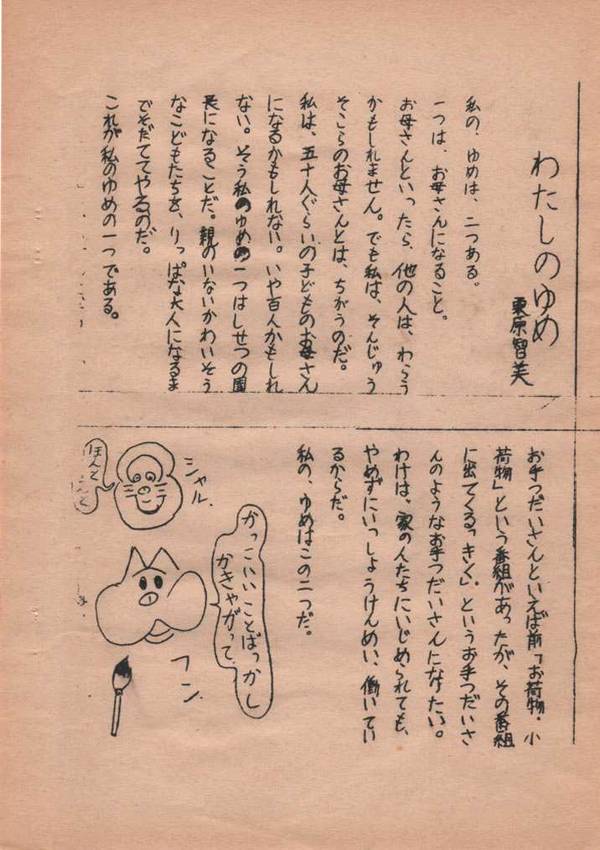 わたしのゆめ
栗原智美
私の、ゆめは、二つある。
一つは、お母さんになること。
お母さんといったら、他の人は、わらう
かもしれません。でも私は、そんじゅう
そこらのお母さんとは、ちがうのだ。
私は、五十人ぐらいの子どものお母さん
になるかもしれない。いや百人かもしれ
ない。そう私のゆめの一つはしせつの園
長になることだ。親のいないかわいそう
なこどもたちを、りっぱな大人になるま
でそだててやるのだ。
これが私のゆめの一つである。
お手つだいさんといえば前「お荷物・小
荷物」という番組があったが、その番組
に出てくる「きく」というお手つだいさ
んのようなお手つだいさんになりたい。
わけは、家の人たちにいじめられても、
やめずにいっしょうけんめい、働いてい
るからだ。
私の、ゆめはこの二つだ。
かっこいいことばっかし
かきゃがって
フン
シャル
ほんと